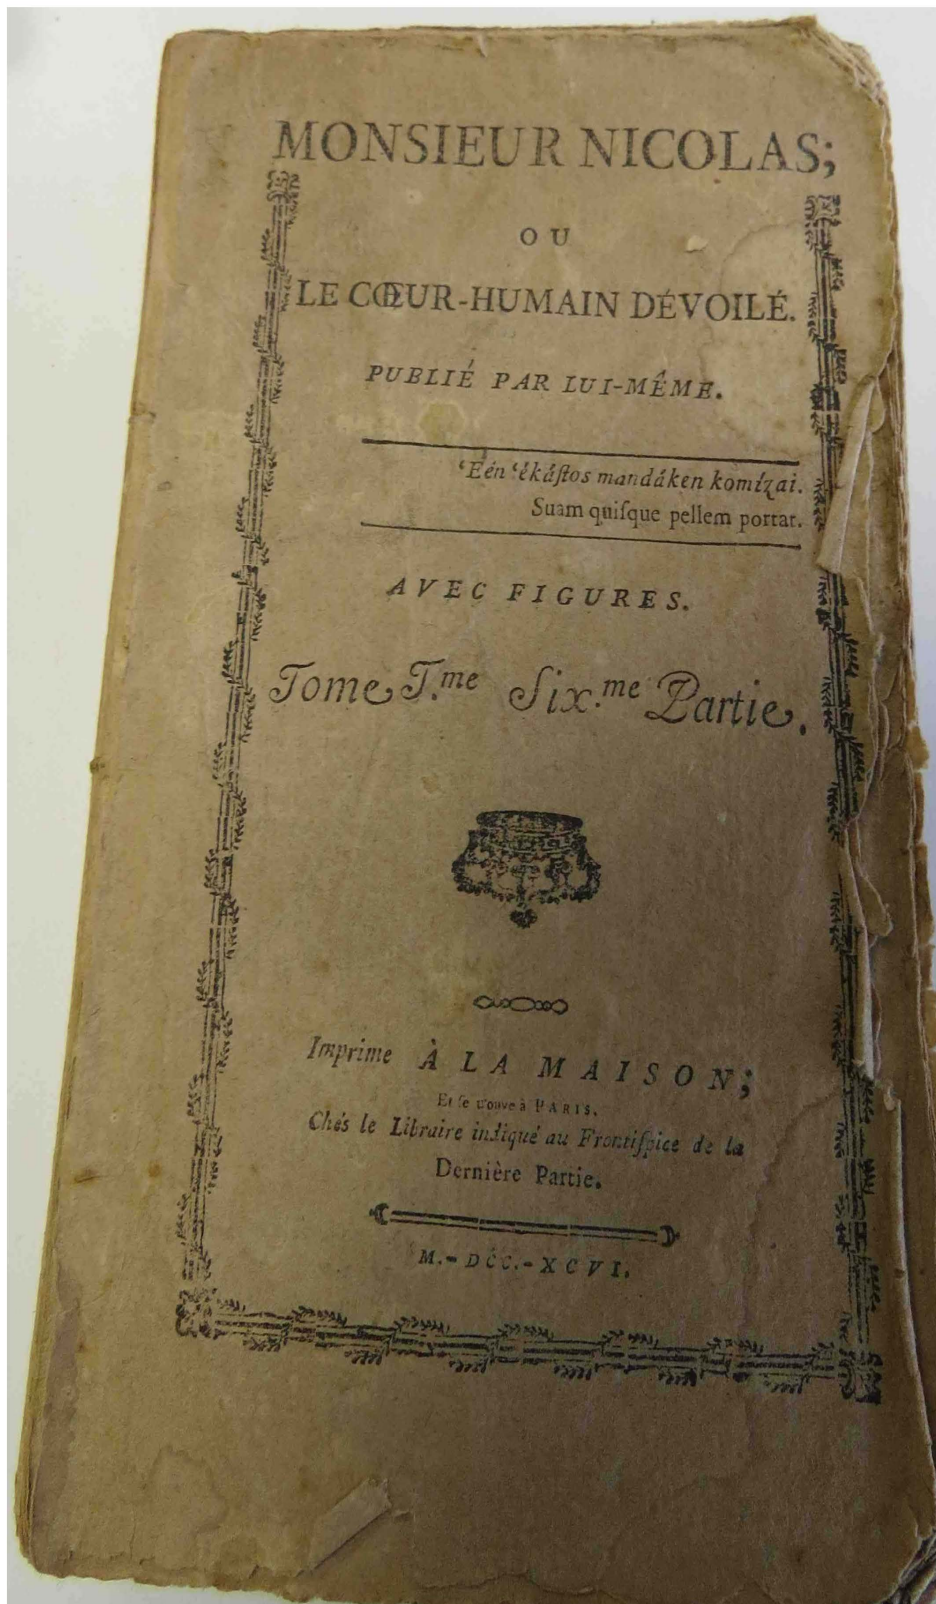 MONSIEUR NICOLAS;
OU
LE CŒUR-HUMAIN DÉVOILÉ.
PUBLIÉ PAR LUI-MÊME.
‘Eén ‘ékáſtos mandáken komízai.
Suam quiſque pellem portat.
AVEC FIGURES.
Tome T.me Six.me Partie.
Imprime À LA MAISON;
Et ſe trouve à PARIS.
Chés le Libraire indiqué au Frontiſpice de la
Dernière Partie.
M.-DCC.-XCVI.